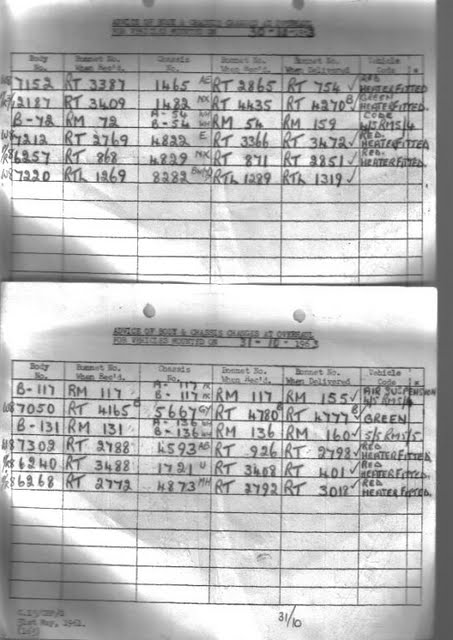 ADVICE OF BODY & CHASSIS CHANGES AT OVERHAUL
FOR VEHICLES MOUNTED ON
Body No. Bonnet No. When Rec'd. Chassis No. Bonnet No. When Rec'd. Bonnet No. When Delivered Vehicle Code *
W8 7152 RT 3387 1465 AE RT 2865 RT 754 ✓ RED HEATER FITTED
2187 RT 3409 1482 NX RT 4435 RT 4270 B ✓ GREEN HEATER FITTED.
B-72 RM 72 A-54 B-54 RM 54 RM 159 CODE 4/5 RM5/4
W8 7212 RT 2769 4822 E RT 3366 RT 3472 ✓ RED. HEATER FITTED.
6257 RT 868 4829 NX RT 871 RT 2851 ✓ RED. HEATER FITTED.
W8 7220 RTL 1269 8282 RTL 1289 RTL 1319 ✓
ADVICE OF BODY & CHASSIS CHANGES AT OVERHAUL
FOR VEHICLES MOUNTED ON 31-10-1963
Body No. Bonnet No. When Rec'd. Chassis No. Bonnet No. When Rec'd. Bonnet No. When Delivered Vehicle Code *
B-117 RM 117 A-117 B-117 RM 117 RM 155 ✓ AIR SUSPENSION 4/5 RM5/4
W8 7050 RT 4165 5667 GY RT 4780 RT 4777 B ✓ GREEN
B-131 RM 131 A-136 B-136 RM 136 RM 160 ✓ 5/5 RM5/5
W8 7302 RT 2788 4593 AB RT 926 RT 2798 ✓ RED HEATER FITTED.
6240 RT 3488 1721 U RT 3408 RT 401 ✓ RED HEATER FITTED.
6268 RT 2772 4873 MH RT 2792 RT 3018 ✓ RED HEATER FITTED.
31st May, 1961.
31/10